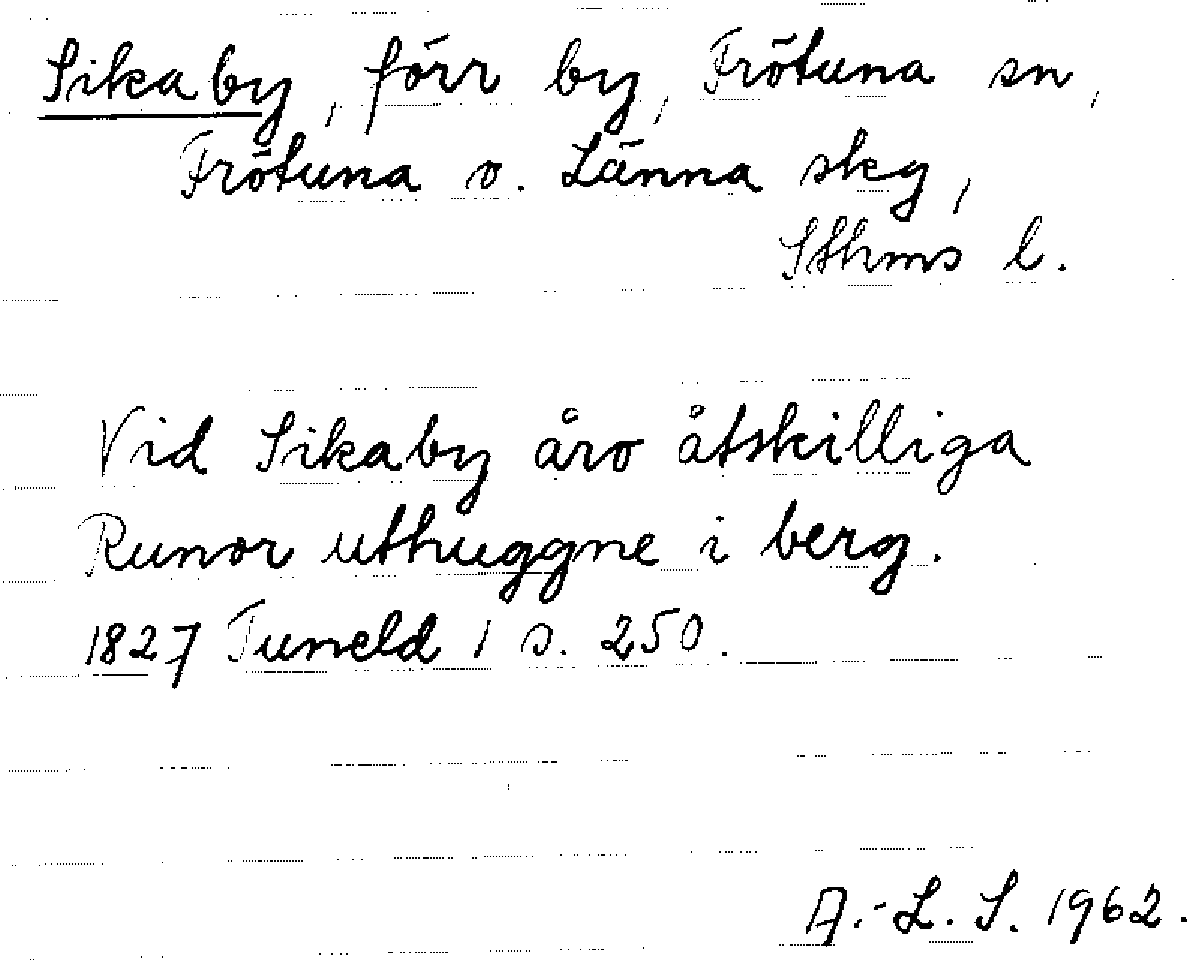 Sikaby, förr by, Frötuna sn,
Frötuna o. Länna skg,
Sthms l.
Vid Sikaby åro åtskilliga
Runor uthuggne i berg.
1827 Tuneld 1 s. 250.
A.-L. S. 1962.